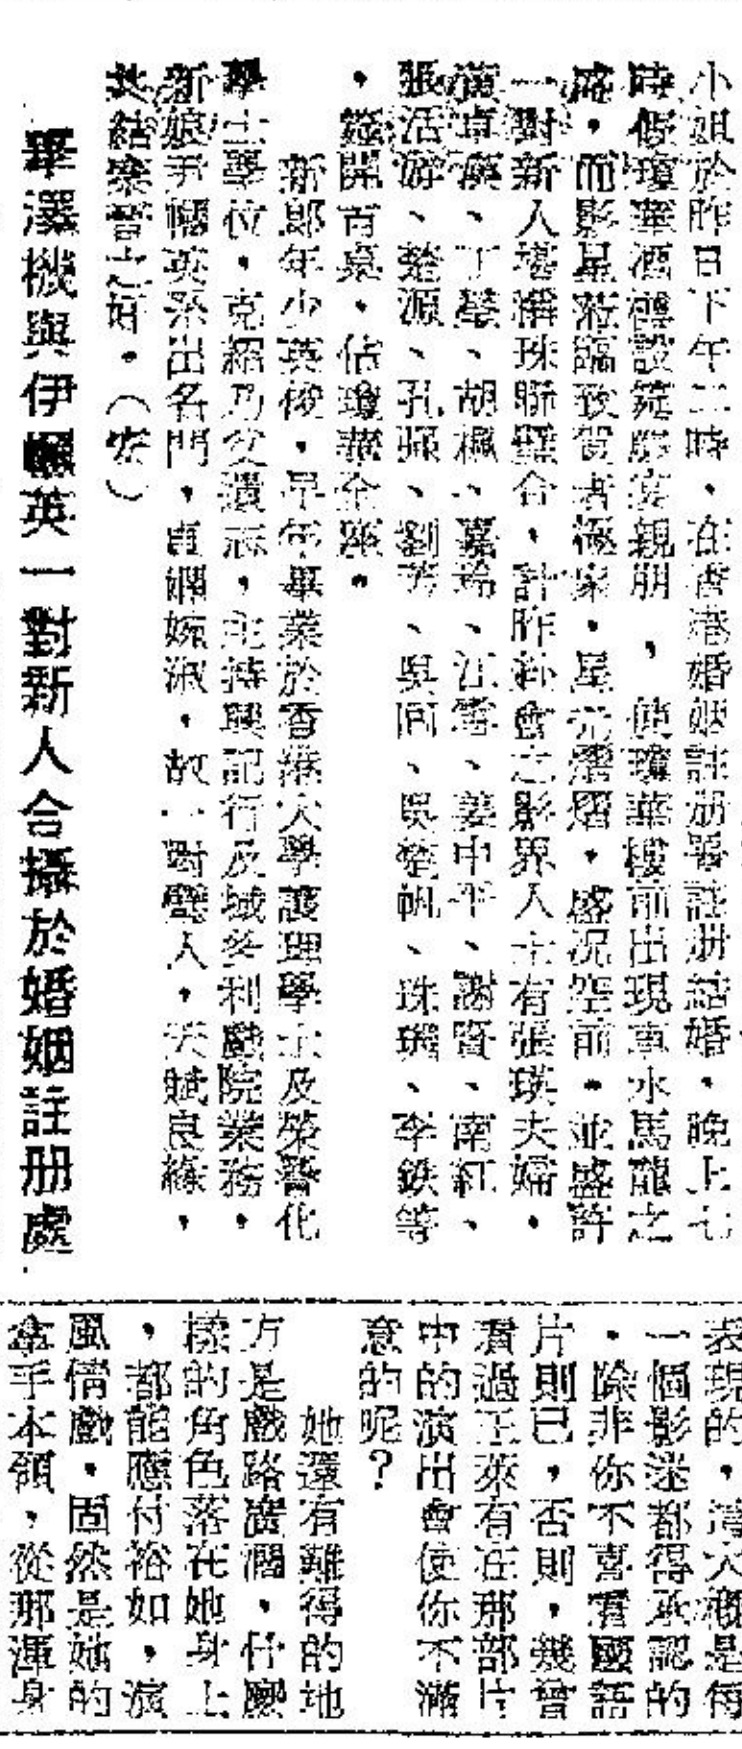 小姐於昨日下午二時,在香港婚姻註册署註册結婚,晚上七
時假瓊華酒樓設筵歡宴親朋,使瓊華樓前出現車水馬龍之
盛,而影星蒞臨致賀者極衆,星光熠熠,盛況空前,並盛許
一對新人堪稱珠聯璧合,計昨赴會之影界人士有張瑛夫婦,
丁瑩、胡楓、嘉玲、江雪、姜中平、謝賢、南紅、
張活游、楚源、孔雀、劉芳、吳回、吳楚帆、珠璣、李鉄等
,筵開百桌,佔瓊華全座。
新郎年少英俊,早年畢業於香港大學護理學士及榮譽化
學士學位,克紹乃父遺志,主持興記行及域多利戲院業務,
新娘尹幗英系出名門,貞嫻婉淑,故一對璧人,天賦良緣,
共結秦晋之好。(安)
畢澤機與伊幗英一對新人合攝於婚姻註册處
表現的,這大概是每
一個影迷都得承認的
,除非你不喜看國語
片則已,否則,幾曾
看過正來有在那部片
中的演出會使你不滿
意的呢?
她還有難得的地
方是戲路廣濶,什麼
樣的角色落在她身上
,都能應付裕如,演
風情戲,固然是她的
拿手本領,從那渾身